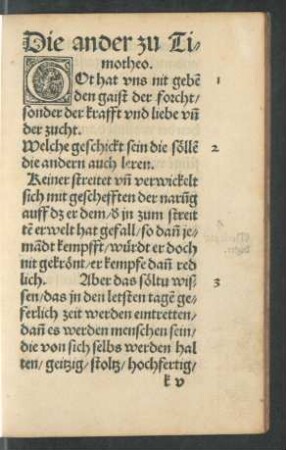 Die ander zu Ti-
motheo.
GOt hat vns nit gebē 1
den gaist der forcht/
sonder der krafft vnd liebe vn̄
der zucht.
Welche geschickt sein die söllē 2
die andern auch leren.
Keiner streitet vn̄ verwickelt
sich mit geschefften der narūg
auff dz er dem/ d̕ jn zum streit
tē erwelt hat gefall/ so dan̄ je-
mādt kempfft/ würdt er doch
nit gekrönt/ er kempfe dan̄ red
lich. Aber das söltu wiß 3
sen/ das in den letsten tagē ge-
ferlich zeit werden eintretten/
dan̄ es werden menschen sein/
die von sich selbs werden hal
ten/ geitzig/ stoltz/ hochfertig/
k v